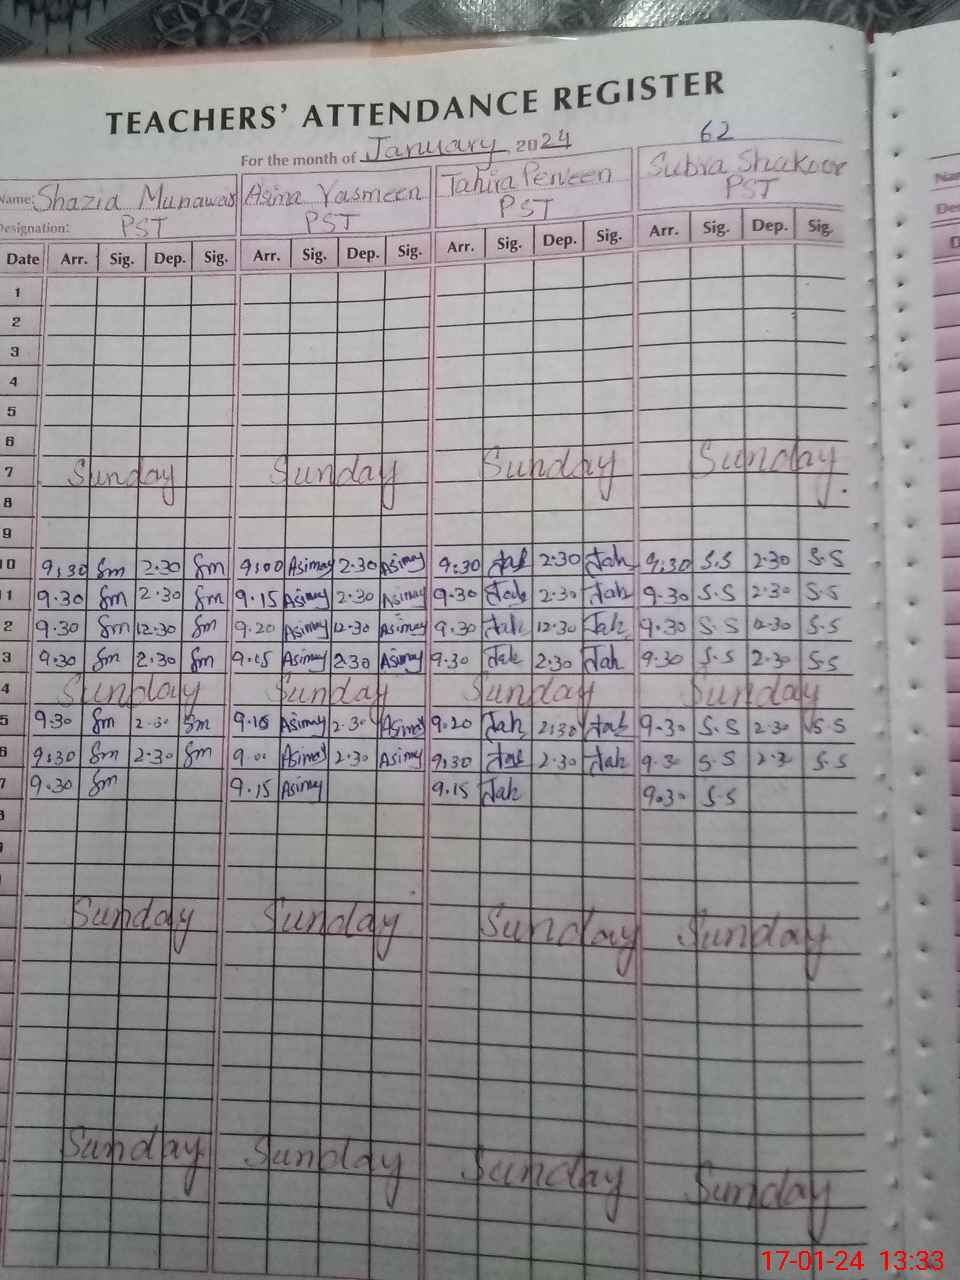 TEACHERS' ATTENDANCE REGISTER
For the month of January 2024 62
Name: Shazia Munawar Asima Yasmeen Tahira Perveen Subra Shakoor
Designation: PST PST PST PST
Date Arr. Sig. Dep. Sig. Arr. Sig. Dep. Sig. Arr. Sig. Dep. Sig. Arr. Sig. Dep. Sig.
1
2
3
4
5
6
7 Sunday Sunday Sunday Sunday
8
9
10 9.30 Sm 2.30 Sm 9.00 Asimay 2.30 Asimay 9.30 Tah 2.30 Tah 9.30 S.S 2.30 S.S
11 9.30 Sm 2.30 Sm 9.15 Asimay 2.30 Asimay 9.30 Tah 2.30 Tah 9.30 S.S 2.30 S.S
2 9.30 Sm 12.30 Sm 9.20 Asimay 12.30 Asimay 9.30 Tah 12.30 Tah 9.30 S.S 12.30 S.S
3 9.30 Sm 2.30 Sm 9.05 Asimay 2.30 Asimay 9.30 Tah 2.30 Tah 9.30 S.S 2.30 S.S
4 Sunday Sunday Sunday Sunday
5 9.30 Sm 2.30 Sm 9.10 Asimay 2.30 Asimay 9.20 Tah 2.30 Tah 9.30 S.S 2.30 S.S
6 9.30 Sm 2.30 Sm 9.00 Asimay 2.30 Asimay 9.30 Tah 2.30 Tah 9.30 S.S 2.30 S.S
7 9.30 Sm 9.15 Asimay 9.15 Tah 9.30 S.S
8
Sunday Sunday Sunday Sunday
Sunday Sunday Sunday Sunday
17-01-24 13:33